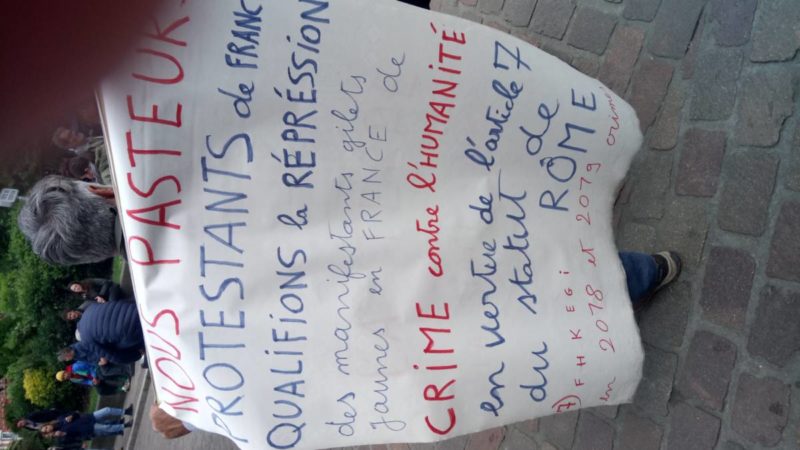 NOUS PASTEUR
PROTESTANTS de FRANC
QUALIFIONS la RÉPRÉSSION
des manifestants gilets
jaunes en FRANCE de
CRIME contre l'HUMANITÉ
en vertue de l'article 7
du statut de
RÔME
7) F H K E G I
en 2018 et 2019 crime